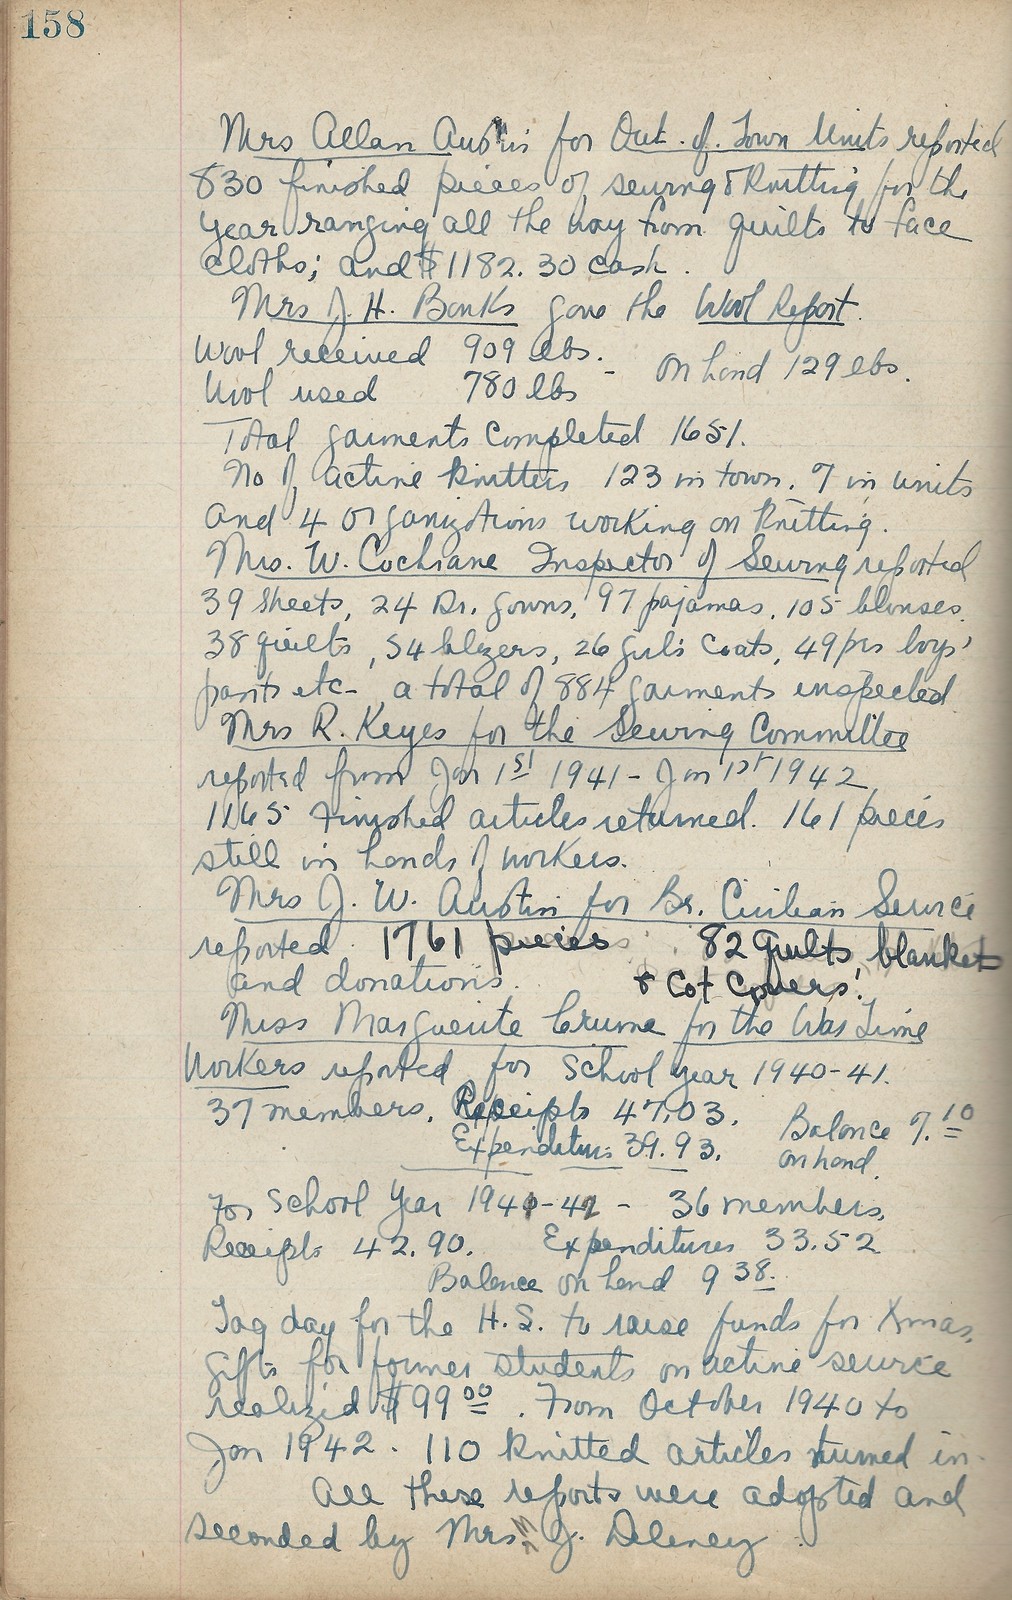 158
Mrs Allan Austin for Out. of. Town Units reported
830 finished pieces of sewing & knitting for the
year ranging all the way from quilts to face
cloths; and $1182.30 cash.
Mrs J. H. Banks gave the Wool Report.
Wool received 909 lbs. - on hand 129 lbs.
Wool used 780 lbs
Total garments completed 1651.
No of active knitters 123 in town. 7 in units
and 4 organizations working on knitting.
Mrs. W. Cochrane Inspector of Sewing reported
39 sheets, 24 Dr. gowns, 97 pajamas, 105 blouses.
38 quilts, 54 blazers, 26 girls coats, 49 prs boys'
pants etc - a total of 884 garments inspected.
Mrs R. Keyes for the Sewing Committee
reported from Jan 1st 1941 - Jan 1st 1942
1165 finished articles returned. 161 pieces
still in hands of workers.
Mrs J. W. Austin for Br. Civilian Service
reported 1761 pieces 82 quilts, blankets
and donations. & Cot Covers.
Miss Marguerite Crume for the War Time
Workers reported for School year 1940-41.
37 members. Receipts 47.03. Balance 7.10
Expenditures 39.93. on hand.
For School Year 1941-42 - 36 members.
Receipts 42.90. Expenditures 33.52
Balance on hand 9 38.
Tag day for the H.S. to raise funds for Xmas.
gifts for former students on active service
realized $99 00. From October 1940 to
Jan 1942. 110 knitted articles turned in.
All these reports were adopted and
seconded by Mrs J. Delaney.